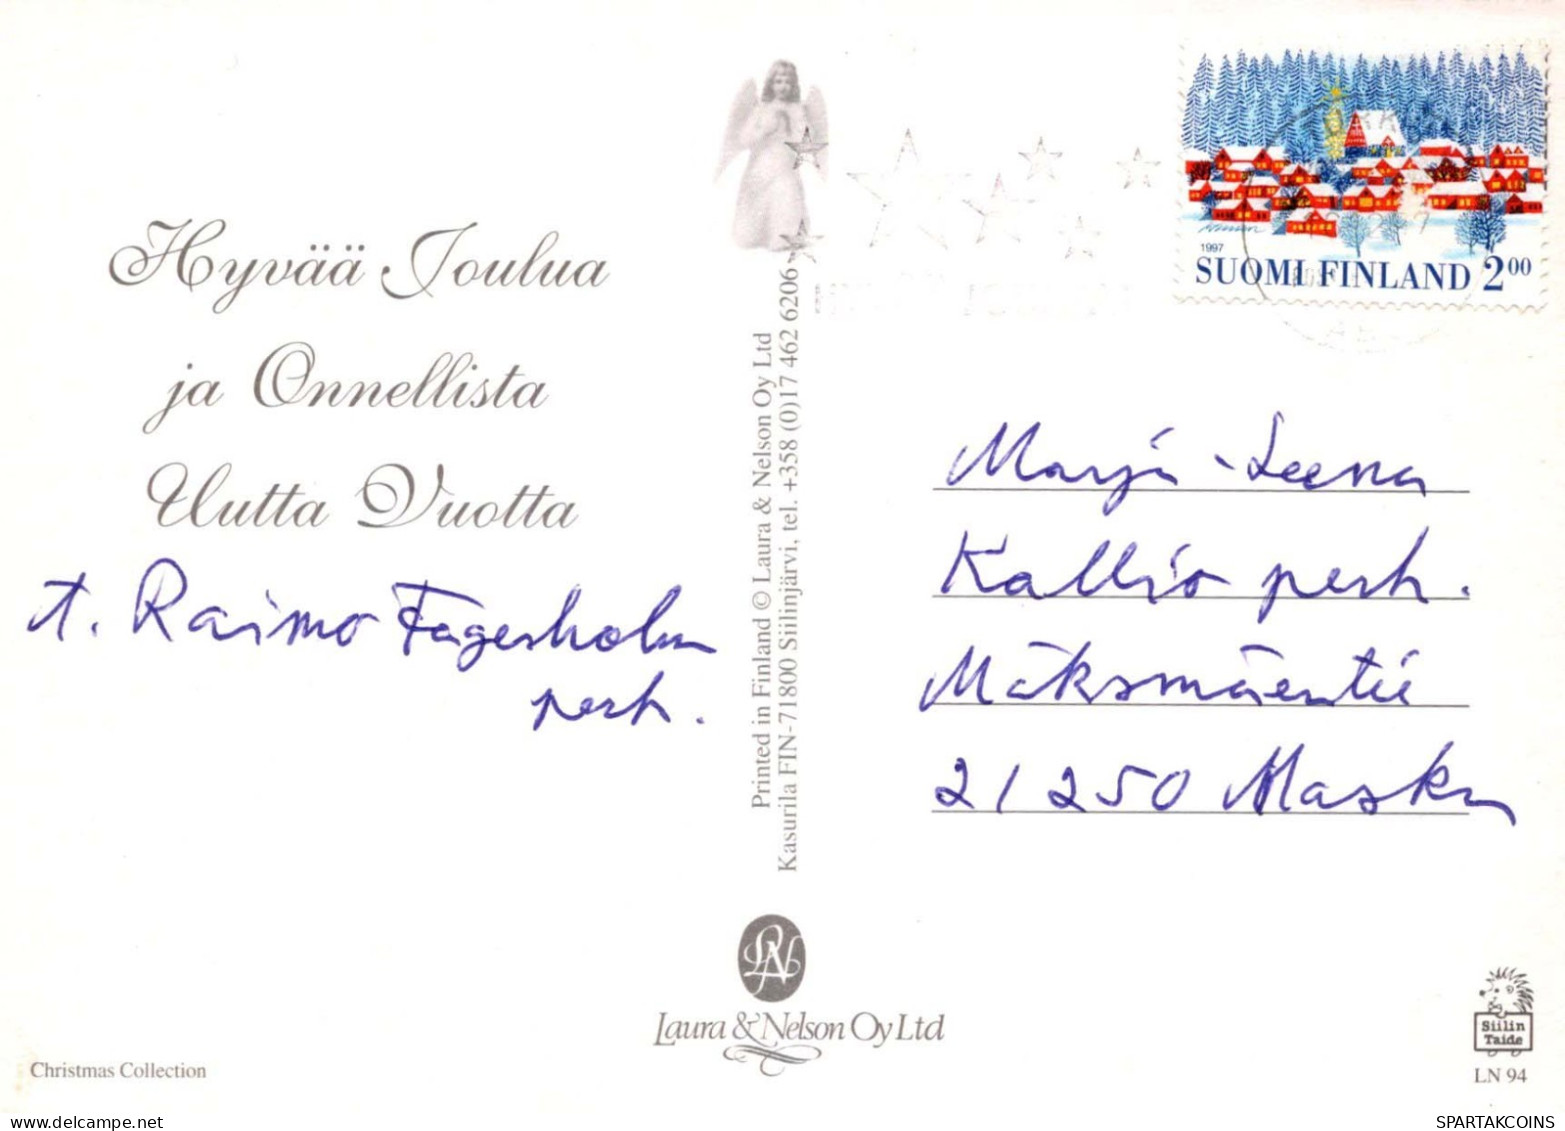 Hyvää Joulua
ja Onnellista
Uutta Vuotta
t. Raimo Fagerholm
perh.
Printed in Finland © Laura & Nelson Oy Ltd
Kasurila FIN-71800 Siilinjärvi, tel. +358 (0)17 462 6206
1997
SUOMI FINLAND 2 00
Marja-Leena
Kallio perh.
Mäksmäentie
21250 Masku
LN
Laura & Nelson Oy Ltd
Siilin
Taide
LN 94
Christmas Collection
delcampe.net
SPARTAKCOINS